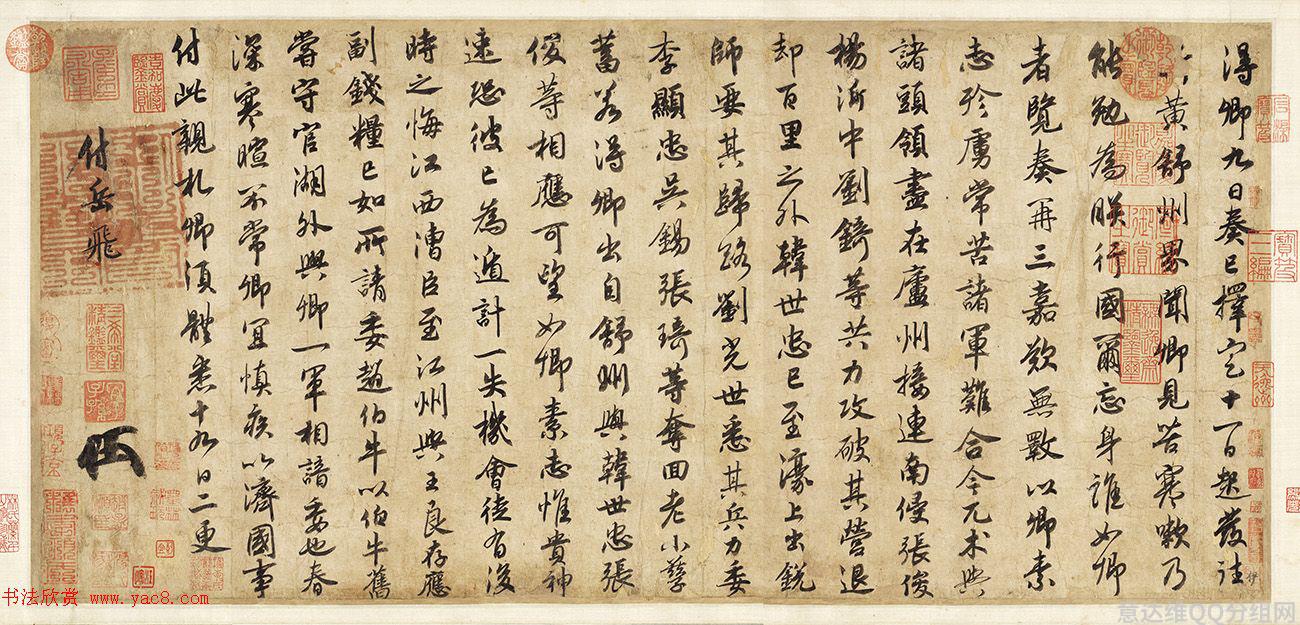 得卿九日奏已擇定十一日起發往
黃舒州界聞卿見苦寒嗽乃
能勉為朕行國爾忘身誰如卿
者覽奏再三嘉歎無斁以卿素
志殄虜常苦諸軍難合今兀术與
諸頭領盡在廬州接連南侵張俊
楊沂中劉錡等共力攻破其營退
却百里之外韓世忠已至濠上出銳
師要其歸路劉光世悉其兵力委
李顯忠吳錫張琦等奪回老小孳
畜若得卿出自舒州與韓世忠張
俊等相應可望如卿素志惟貴神
速恐彼已為遁計一失機會徒有後
時之悔江西漕臣至江州與王良存應
副錢糧已如所請委趙伯牛以伯牛舊
嘗守官湖外與卿一軍相諳委也春
深寒暄不常卿宜慎疾以濟國事
付此親札卿須體悉十九日二更
付岳飛
书法欣赏 www.yac8.com
意达维QQ分组网